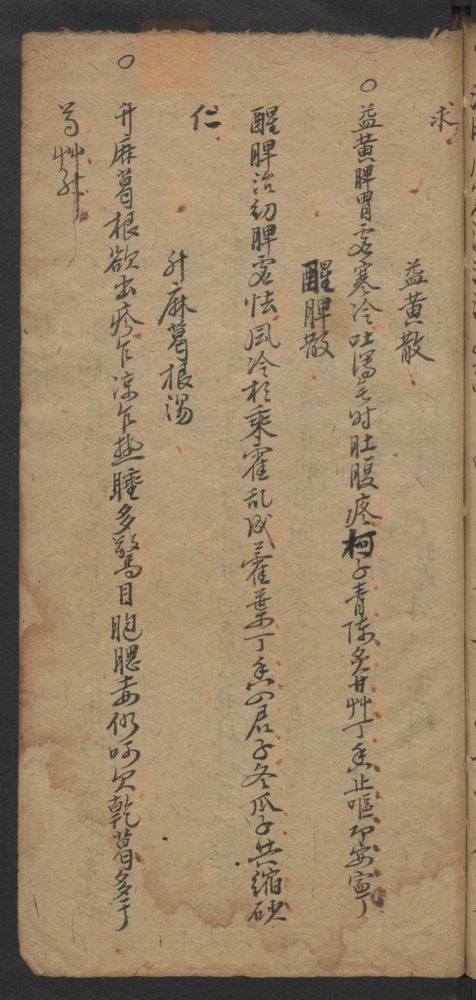 求
益黄散
○益黄脾胃虚寒冷吐瀉無时肚腹疼柯子青陈炙甘艸丁香止嘔即安寧
醒脾散
醒脾治幼脾虚怯風冷相乘霍乱成藿葉丁香四君子冬瓜子共缩砂
仁
升麻葛根湯
○升麻葛根欲出疹乍凉乍熱睡多驚目胞腮赤仍呵欠乾葛多
芍艸升